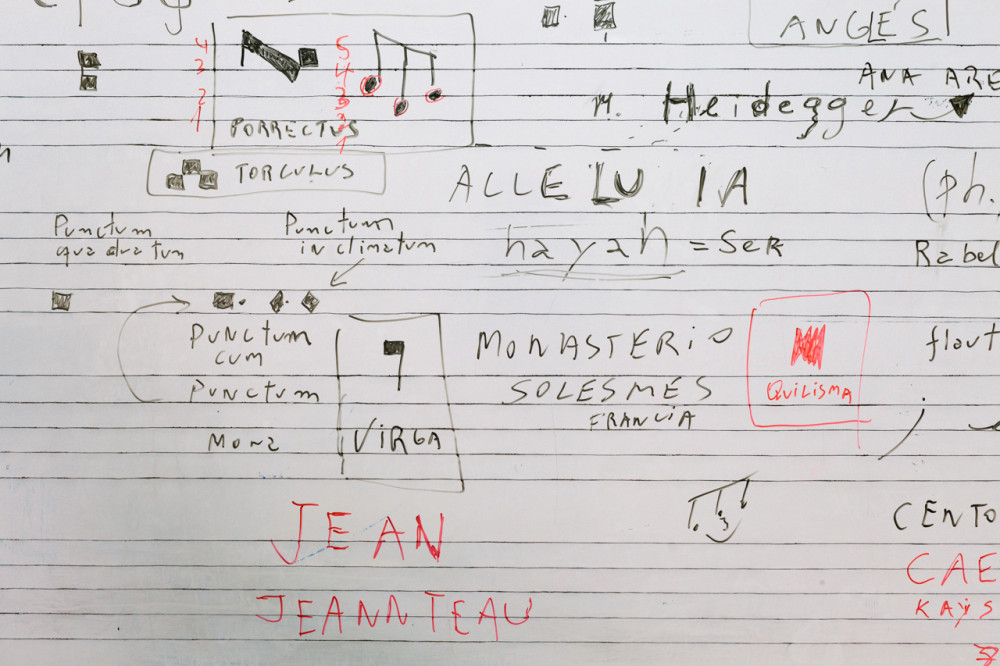 ANGLÉS
4
3
2
1
5
4
3
2
1
PORRECTUS
ANA ARE
M. Heidegger
TORCULUS
ALLELUIA
(ph.
Punctum
quadratum
Punctum
inclinatum
hayah = SER
Rabel
PUNCTUM
CUM
PUNCTUM
MORA
VIRGA
MONASTERIO
SOLESMES
FRANCIA
QUILISMA
flaut
3
CENTO
JEAN
JEANNTEAU
CAE
KAYS